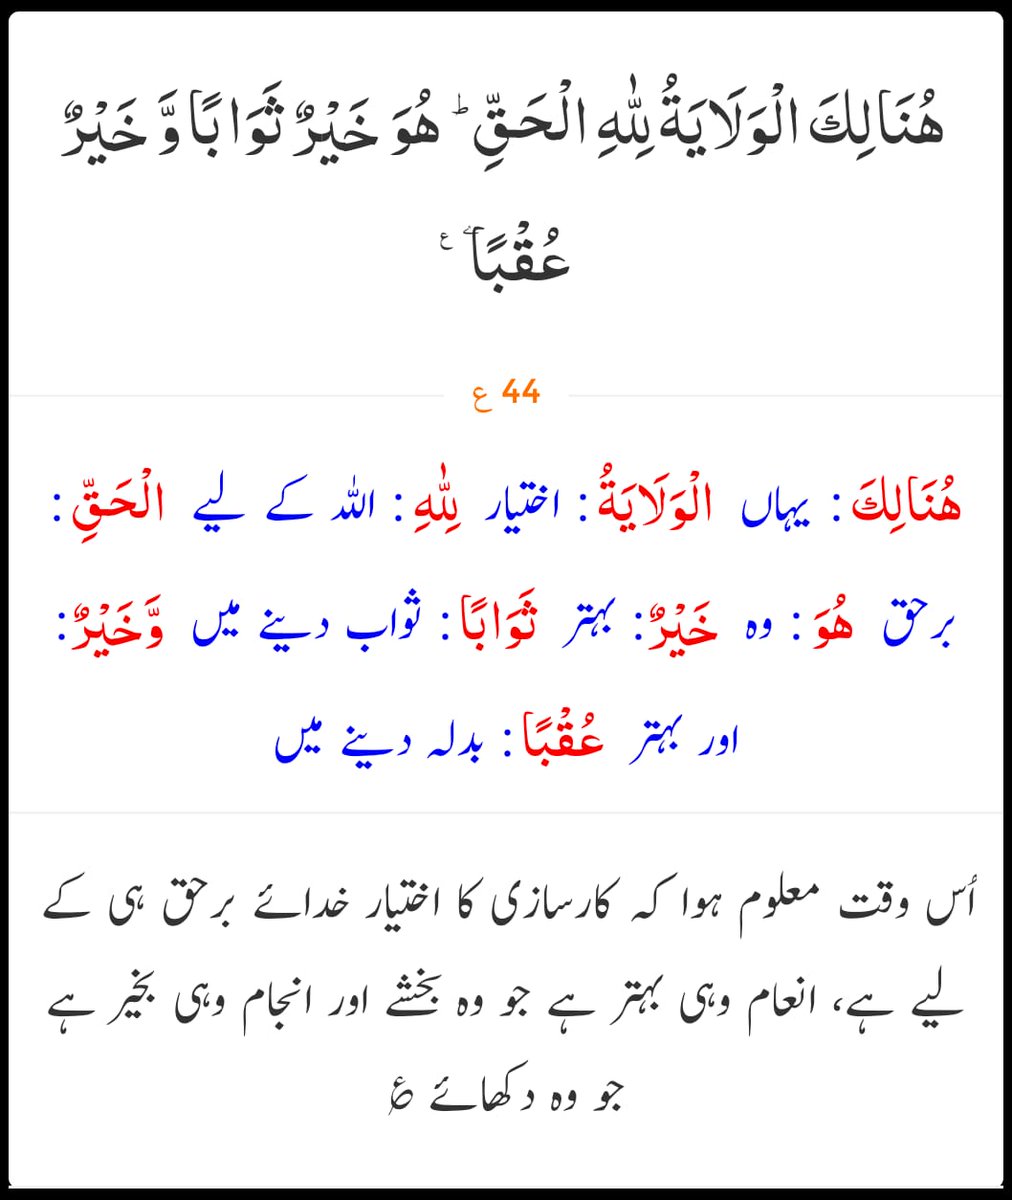 هُنَالِكَ الْوَلَايَةُ لِلّٰهِ الْحَـقِّ‌ ؕ هُوَ خَيْرٌ ثَوَابًا وَّ خَيْرٌ
عُقْبًا ۧ ع
44 ع
هُنَالِكَ: یہاں الْوَلَايَةُ: اختیار لِلّٰهِ: اللہ کے لیے الْحَقِّ:
برحق هُوَ: وہ خَيْرٌ: بہتر ثَوَابًا: ثواب دینے میں وَّخَيْرٌ:
اور بہتر عُقْبًا: بدلہ دینے میں
اُس وقت معلوم ہوا کہ کارسازی کا اختیار خدائے برحق ہی کے
لیے ہے، انعام وہی بہتر ہے جو وہ بخشے اور انجام وہی بخیر ہے
جو وہ دکھائے ؏